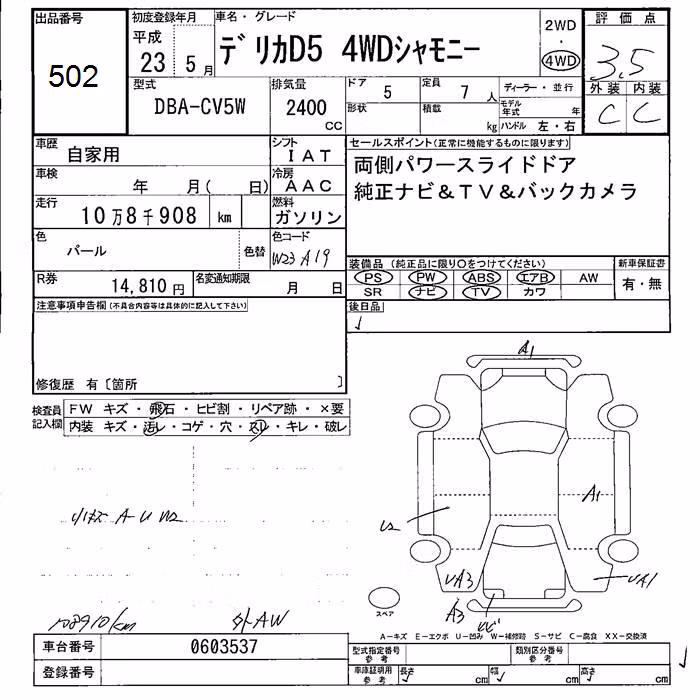 出品番号
502
初度登録年月
平成
23 5月
車名・グレード
デリカD5 4WDシャモニー
2WD
・
4WD
評価点
3.5
外装 内装
C C
型式
DBA-CV5W
排気量
2400
CC
ドア
5
定員
7 人
形状
積載
kg
ディーラー・並行
モデル年式 年
ハンドル 左・右
車歴
自家用
シフト
IAT
車検
年 月( 日)
冷房
AAC
走行
10万8千908 km
燃料
ガソリン
色
パール
色替
色コード
W23 A19
R券
14,810円
名変通知期限
月 日
セールスポイント(正常に機能するものに限ります)
両側パワースライドドア
純正ナビ&TV&バックカメラ
装備品(純正品に限り〇をつけてください)
PS PW ABS エアB AW
SR ナビ TV カワ
新車保証書
有・無
後日品
注意事項申告欄(不具合内容等は具体的に記入して下さい)
修復歴 有〔箇所 〕
検査員
記入欄
FW キズ・飛石・ヒビ割・リペア跡・×要
内装 キズ・汚レ・コゲ・穴・スレ・キレ・破レ
小キズ A U W2
A1
A1
U2
UA3
UA1
A3
スペア
外AW
A-キズ E-エクボ U-凹み W-補修跡 S-サビ C-腐食 XX-交換済
車台番号
0603537
登録番号
型式指定番号
参考
類別区分番号
参考
車庫証明用
参考
長さ cm
幅 cm
高さ cm